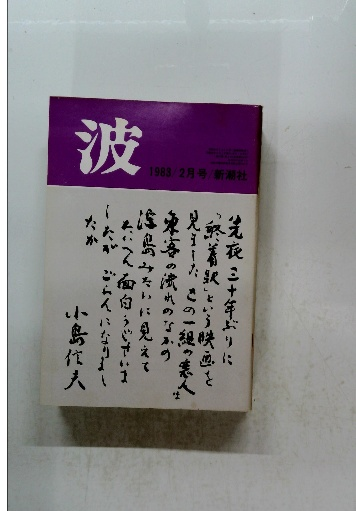 波
1988/2月号/新潮社
先夜三十年ぶりに
「終着駅」という映画を
見ました この一組の恋人は
乗客の流れのなかの
浮島みたいに見えて
たいへん面白うございま
したが ごらんになりまし
たか
小島信夫